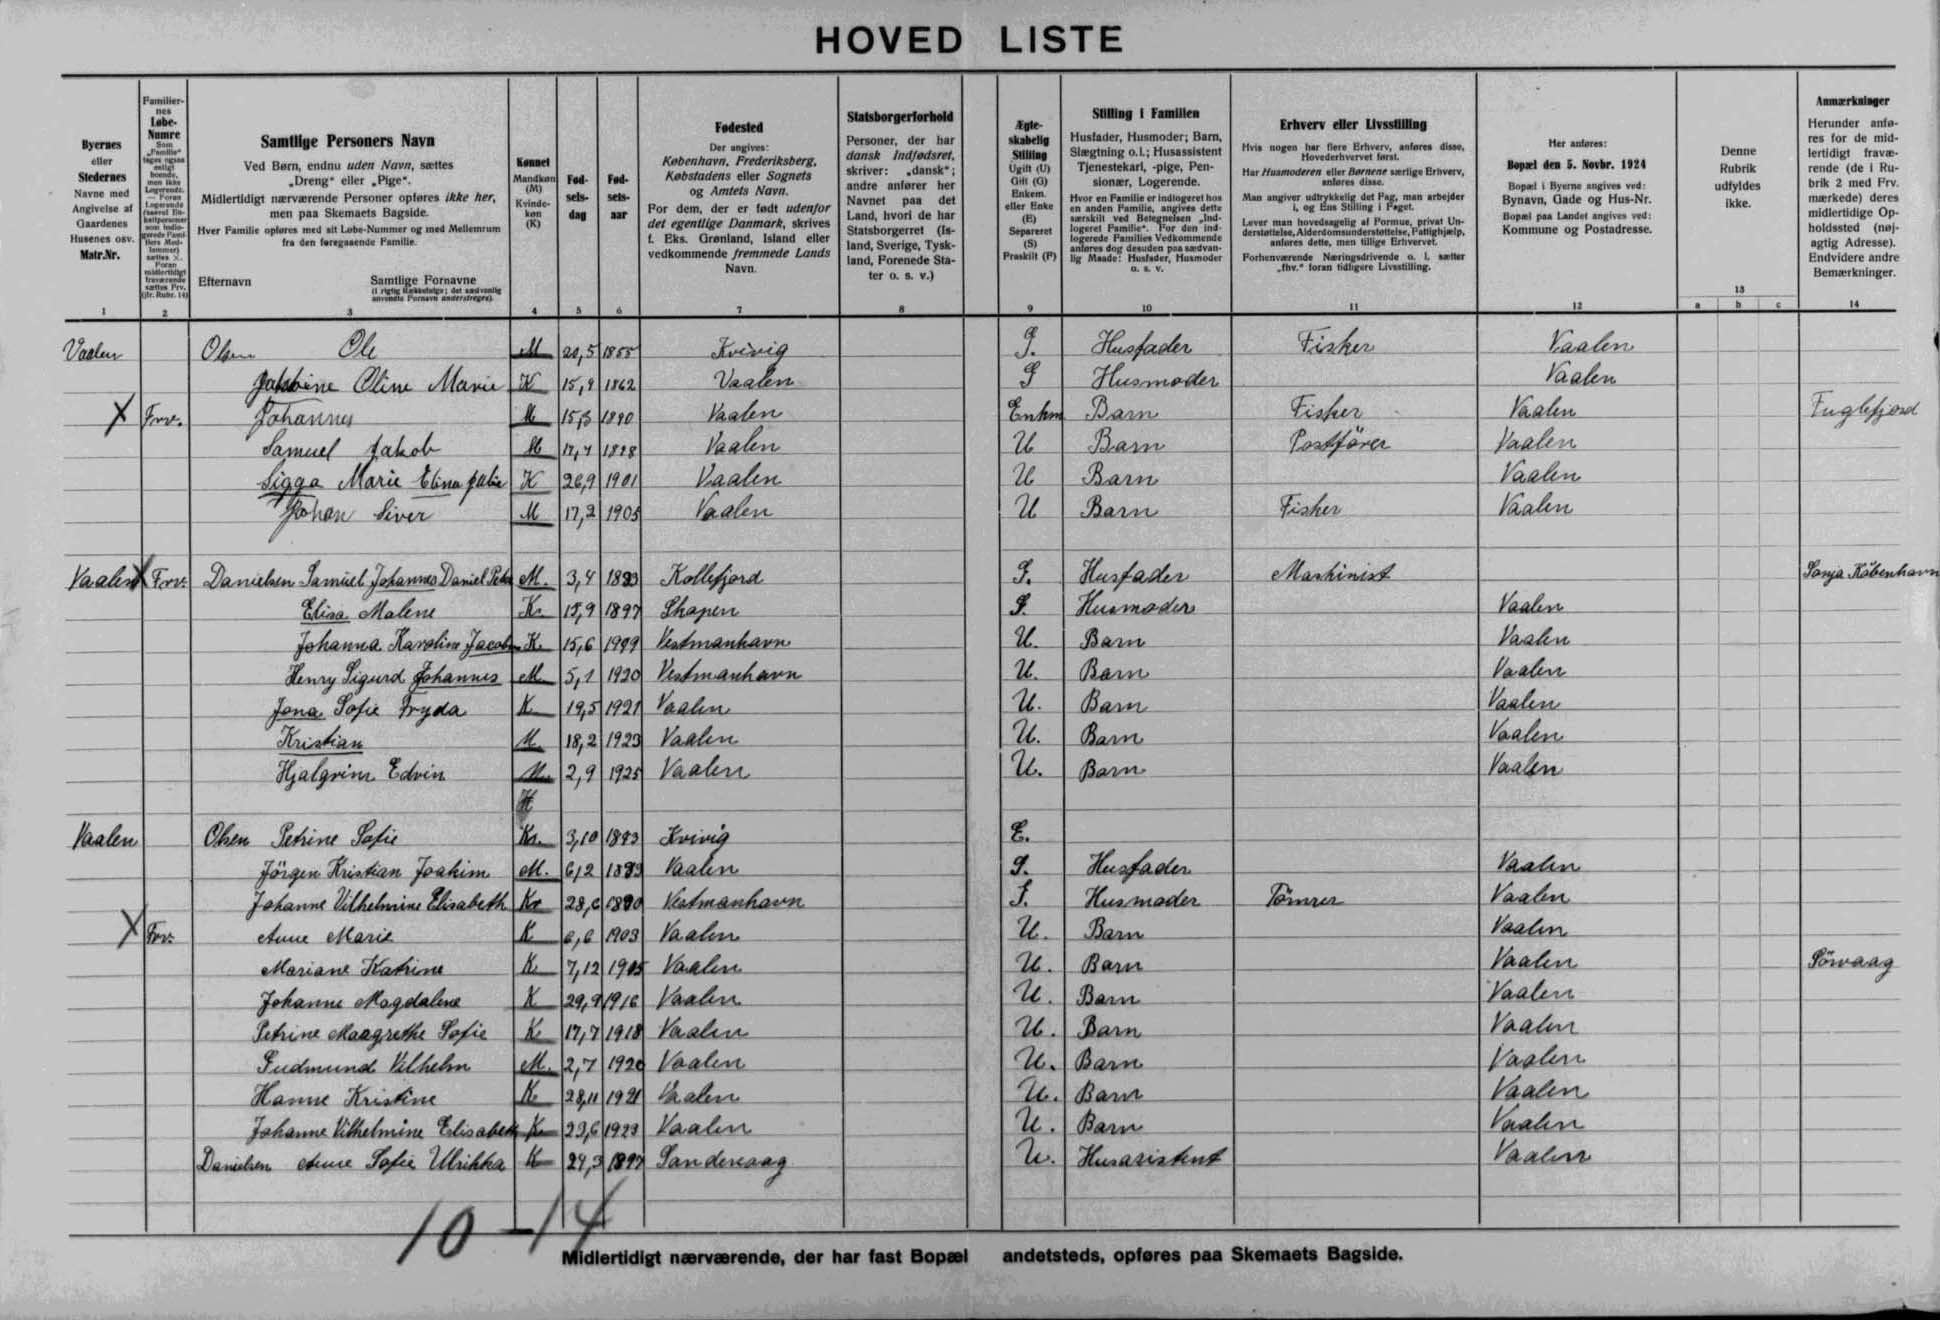 HOVED LISTE
Byernes eller Stedernes Navne med Angivelse af Gaardenes Husenes osv. Matr.Nr.
Familiernes Løbe-Numre
Samtlige Personers Navn
Ved Børn, endnu uden Navn, sættes „Dreng“ eller „Pige“.
Midlertidigt nærværende Personer opføres ikke her, men paa Skemaets Bagside.
Hver Familie opføres med sit Løbe-Nummer og med Mellemrum fra den foregaaende Familie.
Efternavn Samtlige Fornavne
(i rigtig Rækkefølge; det sædvanlig anvendte Fornavn understreges).
Kønnet Mandkøn (M) Kvindekøn (K)
Fødselsdag
Fødselsaar
Fødested
Der angives: København, Frederiksberg, Købstadens eller Sognets og Amtets Navn.
For dem, der er født udenfor det egentlige Danmark, skrives f. Eks. Grønland, Island eller vedkommende fremmede Lands Navn.
Statsborgerforhold
Personer, der har dansk Indfødsret, skriver: „dansk“; andre anfører her Navnet paa det Land, hvori de har Statsborgerret (Island, Sverige, Tyskland, Forenede Stater o. s. v.)
Ægteskabelig Stilling Ugift (U) Gift (G) Enkem. eller Enke (E) Separeret (S) Fraskilt (F)
Stilling i Familien
Husfader, Husmoder; Barn, Slægtning o.l.; Husassistent Tjenestekarl, -pige, Pensionær, Logerende.
Hvor en Familie er indlogeret hos en anden Familie, angives dette særskilt ved Betegnelsen „Indlogeret Familie“. For den indlogerede Families Vedkommende anføres dog desuden paa sædvanlig Maade: Husfader, Husmoder o. s. v.
Erhverv eller Livsstilling
Hvis nogen har flere Erhverv, anføres disse, Hovederhvervet først.
Har Husmoderen eller Børnene særlige Erhverv, anføres disse.
Man angiver udtrykkelig det Fag, man arbejder i, og Ens Stilling i Faget.
Lever man hovedsagelig af Formue, privat Understøttelse, Alderdomsunderstøttelse, Fattighjælp, anføres dette, men tillige Erhvervet.
Forhenværende Næringsdrivende o. l. sætter „fhv.“ foran tidligere Livsstilling.
Her anføres: Bopæl den 5. Novbr. 1924
Bopæl i Byerne angives ved: Bynavn, Gade og Hus-Nr.
Bopæl paa Landet angives ved: Kommune og Postadresse.
Denne Rubrik udfyldes ikke.
Anmærkninger
Herunder anføres for de midlertidigt fraværende (de i Rubrik 2 med Frv. mærkede) deres midlertidige Opholdssted (nøjagtig Adresse). Endvidere andre Bemærkninger.
1 2 3 4 5 6 7 8 9 10 11 12 13 a b c 14
Vaalen Olsen Ole M 20,5 1855 Kvivig G. Husfader Fisker Vaalen
Oline Marie K 15,9 1862 Vaalen G Husmoder Vaalen
X Frv. Johannes M 15,3 1890 Vaalen Enkm Barn Fisker Vaalen Fuglefjord
Samuel Jakob M 17,7 1898 Vaalen U Barn Postfører Vaalen
Sigga Marie Elina K 26,9 1901 Vaalen U Barn Vaalen
Johan Siver M 17,2 1905 Vaalen U Barn Fisker Vaalen
Vaalen X Frv. Danielsen Samuel Johannes Daniel M. 3,4 Kollefjord G. Husfader Maskinist Sonja København
Elisa Malene K. 15,9 1897 Skapen G. Husmoder Vaalen
Johanna Karoline K. 15,6 Vestmanhavn U. Barn Vaalen
Henry Sigurd Johannes M 5,1 1920 Vestmanhavn U. Barn Vaalen
Jona Sofie Fryda K 19,5 1921 Vaalen U. Barn Vaalen
Kristian M. 18,2 1923 Vaalen U. Barn Vaalen
Hjalgrim Edvin M 2,9 1925 Vaalen U. Barn Vaalen
Vaalen Olsen Petrine Sofie K. 3,10 Kvivig E.
Jörgen Kristian Joakim M. 6,2 Vaalen G. Husfader Vaalen
Johanne Vilhelmine Elisabeth K 28,6 Vestmanhavn G. Husmoder Tömrer Vaalen
X Frv. Anne Marie K 6,6 1903 Vaalen U. Barn Vaalen
Mariane Katrine K 7,12 Vaalen U. Barn Vaalen Sörvaag
Johanne Magdalene K 29,9 1916 Vaalen U. Barn Vaalen
Petrine Maagrethe Sofie K 17,7 1918 Vaalen U. Barn Vaalen
Gudmund Vilhelm M. 2,7 1920 Vaalen U. Barn Vaalen
Hanne Kristine K 28,11 1921 Vaalen U. Barn Vaalen
Johanne Vilhelmine Elisabeth K 23,6 1923 Vaalen U. Barn Vaalen
Danielsen Anne Sofie Ulrikka K 24,3 1897 Sandevaag U. Husasistent Vaalen
10-14
Midlertidigt nærværende, der har fast Bopæl andetsteds, opføres paa Skemaets Bagside.